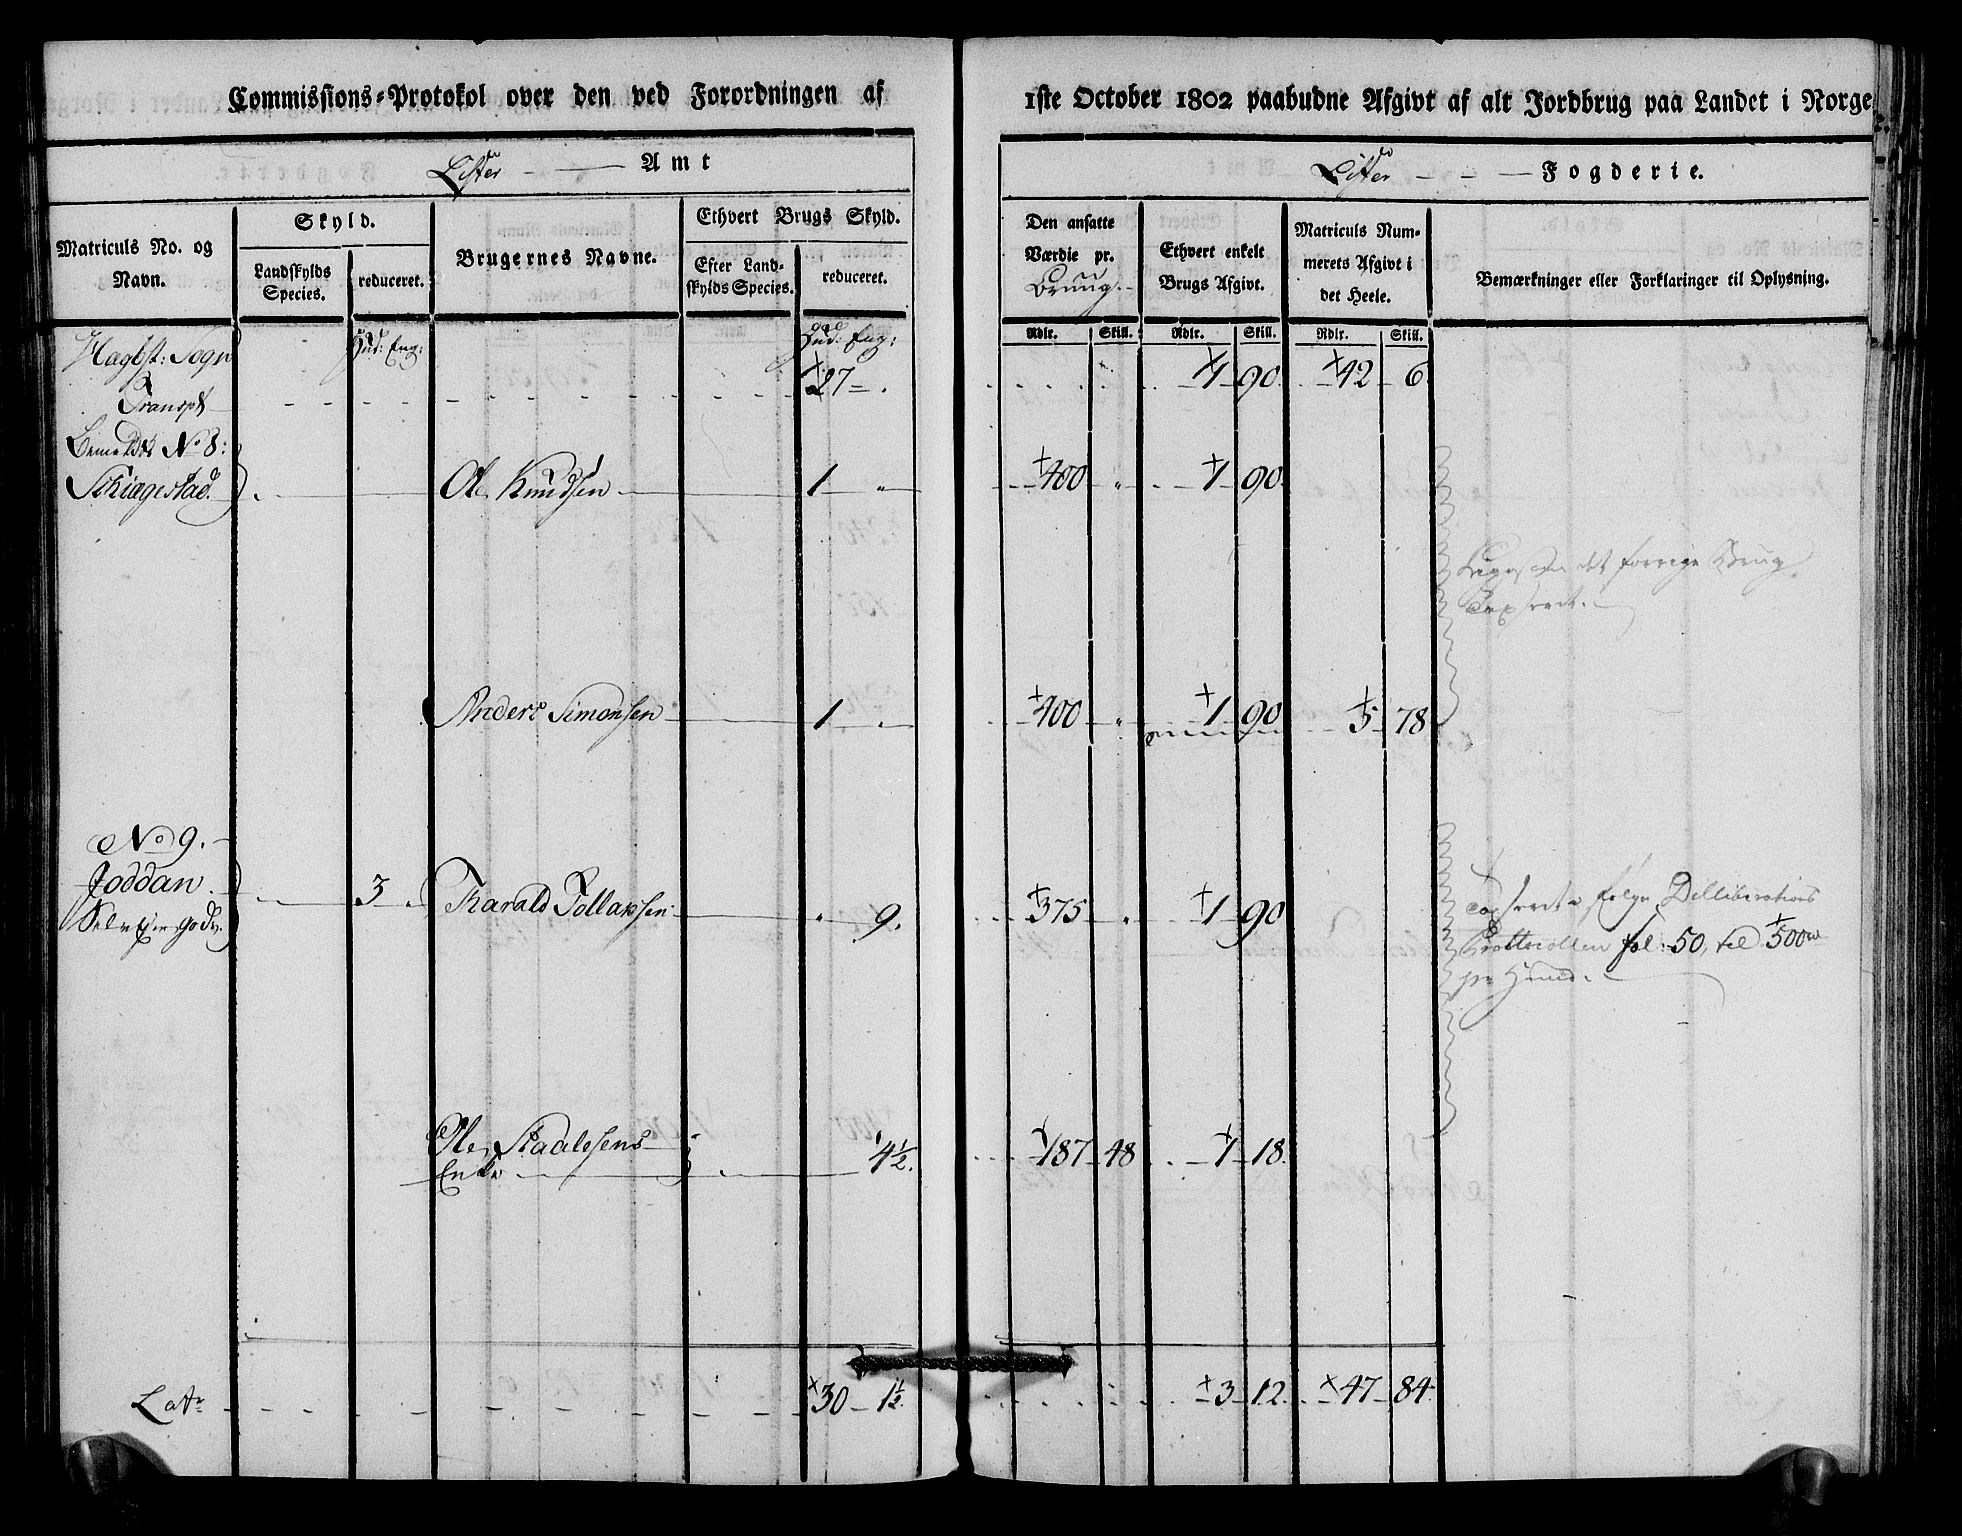 Commissions-Protokol over den ved Forordningen af 1ste October 1802 paabudne Afgivt af alt Jordbrug paa Landet i Norge
Lister — Amt
Lister — Fogderie.
Matriculs No. og Navn.
Skyld.
Landskylds Species.
reduceret.
Brugernes Navne.
Ethvert Brugs Skyld.
Efter Landskylds Species.
reduceret.
Den ansatte Værdie pr. Bruug.
Ethvert enkelt Brugs Afgivt.
Matriculs Nummerets Afgivt i det Heele.
Bemærkninger eller Forklaringer til Oplysning.
Rdlr. Skill. Rdlr. Skill. Rdlr. Skill.
Hud: Eng: Hud: Eng:
Sogn
Transpt 27 — 1 90 42 6
No 8:
Skiagestad. Ole Knudsen 1 " 400 " 1 90
det forrige Brug
Anders Simonsen 1 " 400 " 1 90 5 78
No 9.
Joddan. 3 Tharald Tollarsen " 9. 375 " 1 90
Delliberations
Protocollen fol: 50, til 500
Ole Staalesens 4½. 187 48 1 18
Enke
Lat 30 1½. 3 12 47 84